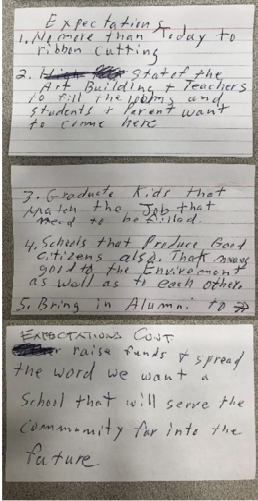 Expectations
1. No more than Today to
ribbon cutting
2. State of the
Art Building + Teachers
to fill the rooms and
students + Parent want
to come here
3. Graduate Kids that
Match the Job that
need to be filled.
4. Schools that Produce Good
Citizens also. That means
good to the Environment
as well as to each other.
5. Bring in Alumni to →
EXPECTATIONS CONT
raise funds + spread
the word we want a
School that will serve the
Community far into the
future.